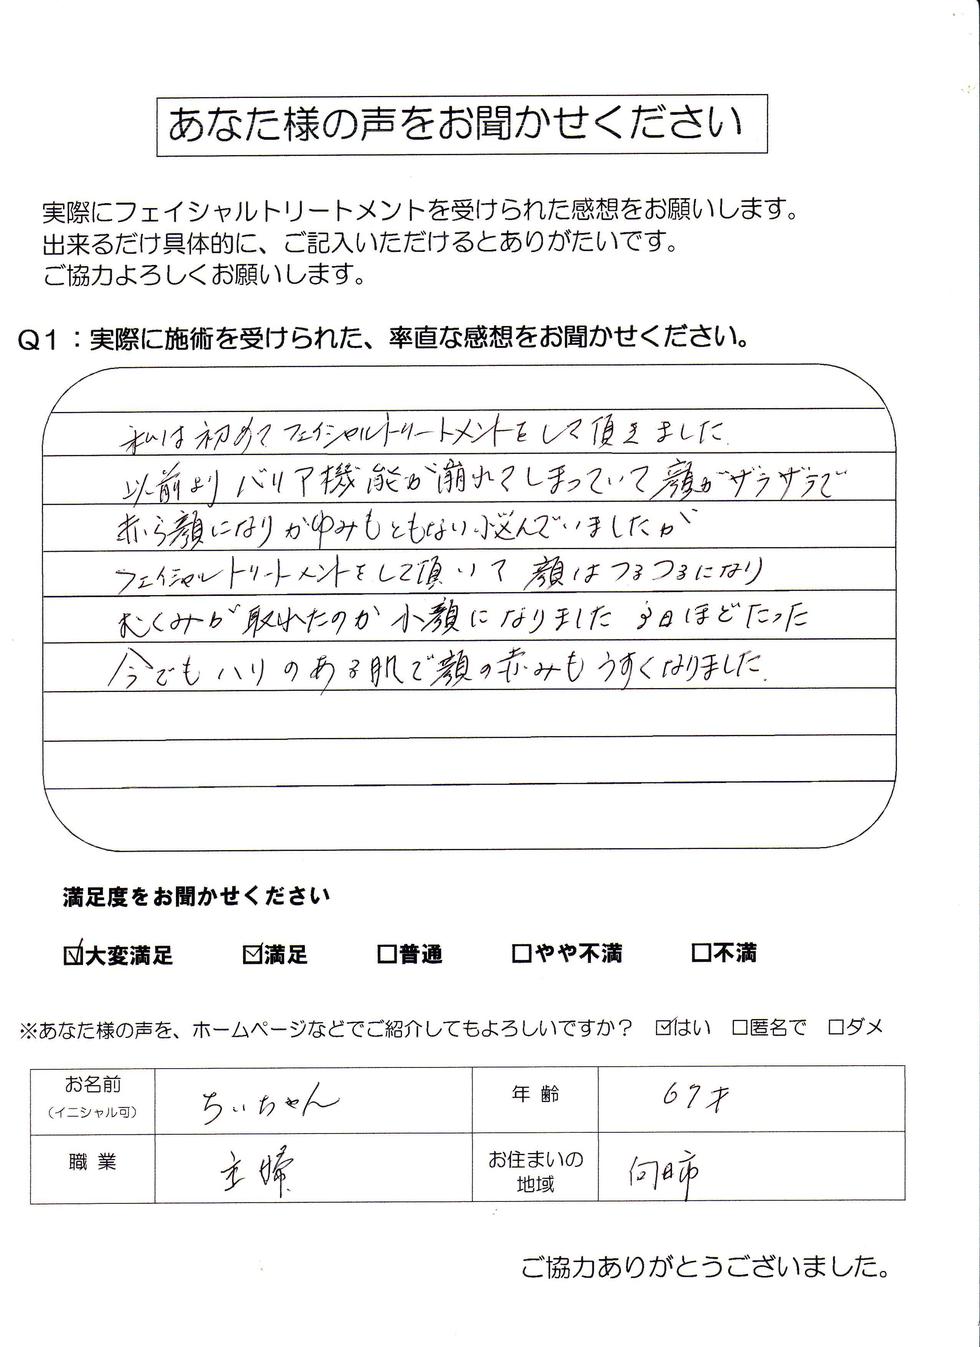 あなた様の声をお聞かせください
実際にフェイシャルトリートメントを受けられた感想をお願いします。
出来るだけ具体的に、ご記入いただけるとありがたいです。
ご協力よろしくお願いします。
Q1：実際に施術を受けられた、率直な感想をお聞かせください。
私は初めてフェイシャルトリートメントをして頂きました.
以前よりバリア機能が崩れてしまっていて顔がザラザラで
赤ら顔になりかゆみもともない悩んでいましたが
フェイシャルトリートメントをして頂いて 顔はつるつるになり
むくみが取れたのか小顔になりました 3日ほどたった
今でもハリのある肌で顔の赤みもうすくなりました.
満足度をお聞かせください
☑大変満足 ☑満足 □普通 □やや不満 □不満
※あなた様の声を、ホームページなどでご紹介してもよろしいですか？ ☑はい □匿名で □ダメ
お名前 ちぃちゃん 年 齢 67才
（イニシャル可）
職 業 主婦 お住まいの 向日市
地域
ご協力ありがとうございました。